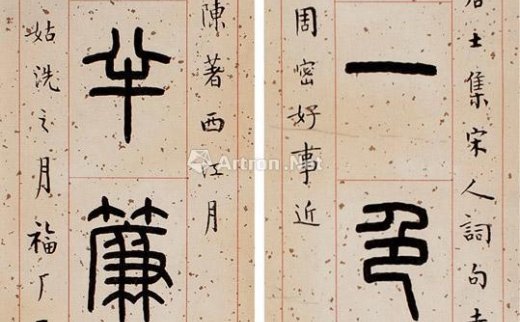 居士集宋人詞句
一色
周密好事近
陳著西江月
半簾
姑洗之月福厂
Artron.Net